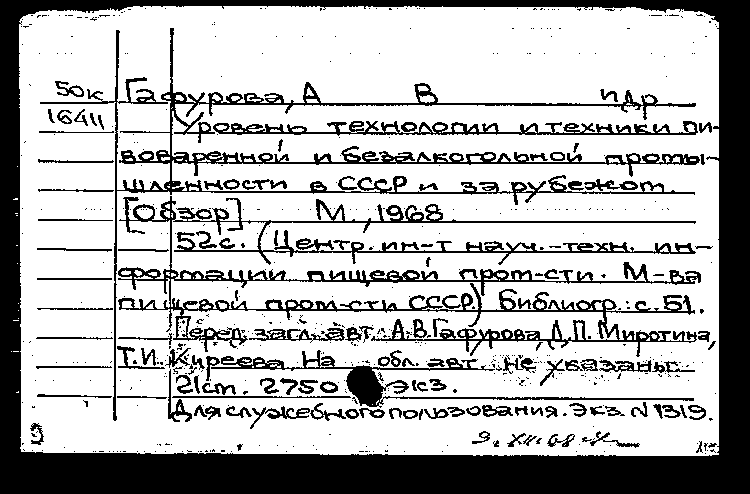 50к Гафурова, А В и др
16411 Уровень технологии и техники пи-
воваренной и безалкогольной промы-
шленности в СССР и за рубежом.
[Обзор]. М., 1968.
52с. (Центр. ин-т науч.-техн. ин-
формации пищевой пром-сти. М-ва
пищевой пром-сти СССР) Библиогр.: с. 51.
Перед загл. авт. А.В. Гафурова, Д.П. Миротина,
Т.И. Киреева На обл. авт. не указаны
21ст. 2750 экз.
Для служебного пользования. Экз. N 1319.
9. XII. 68